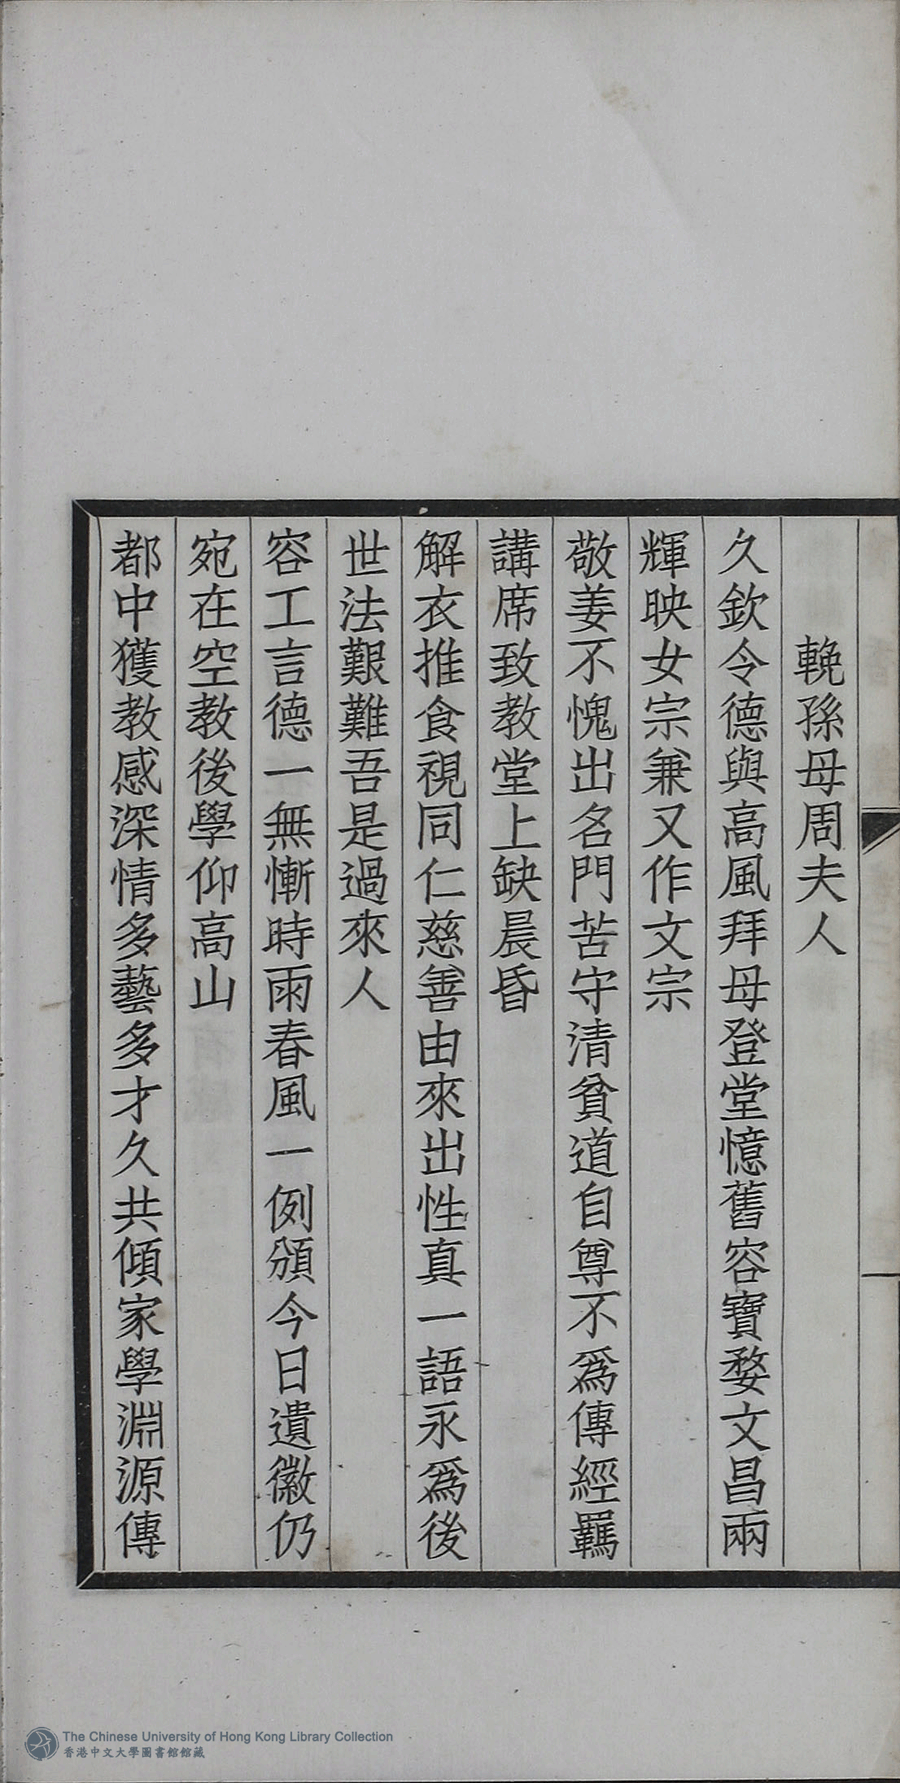 輓孫母周夫人
久欽令德與高風拜母登堂憶舊容寶婺文昌兩
輝映女宗兼又作文宗
敬姜不愧出名門苦守清貧道自尊不爲傳經羈
講席致教堂上缺晨昏
解衣推食視同仁慈善由來出性真一語永爲後
世法艱難吾是過來人
容工言德一無慚時雨春風一例頒今日遺徽仍
宛在空教後學仰高山
都中獲教感深情多藝多才久共傾家學淵源傳
The Chinese University of Hong Kong Library Collection
香港中文大學圖書館館藏